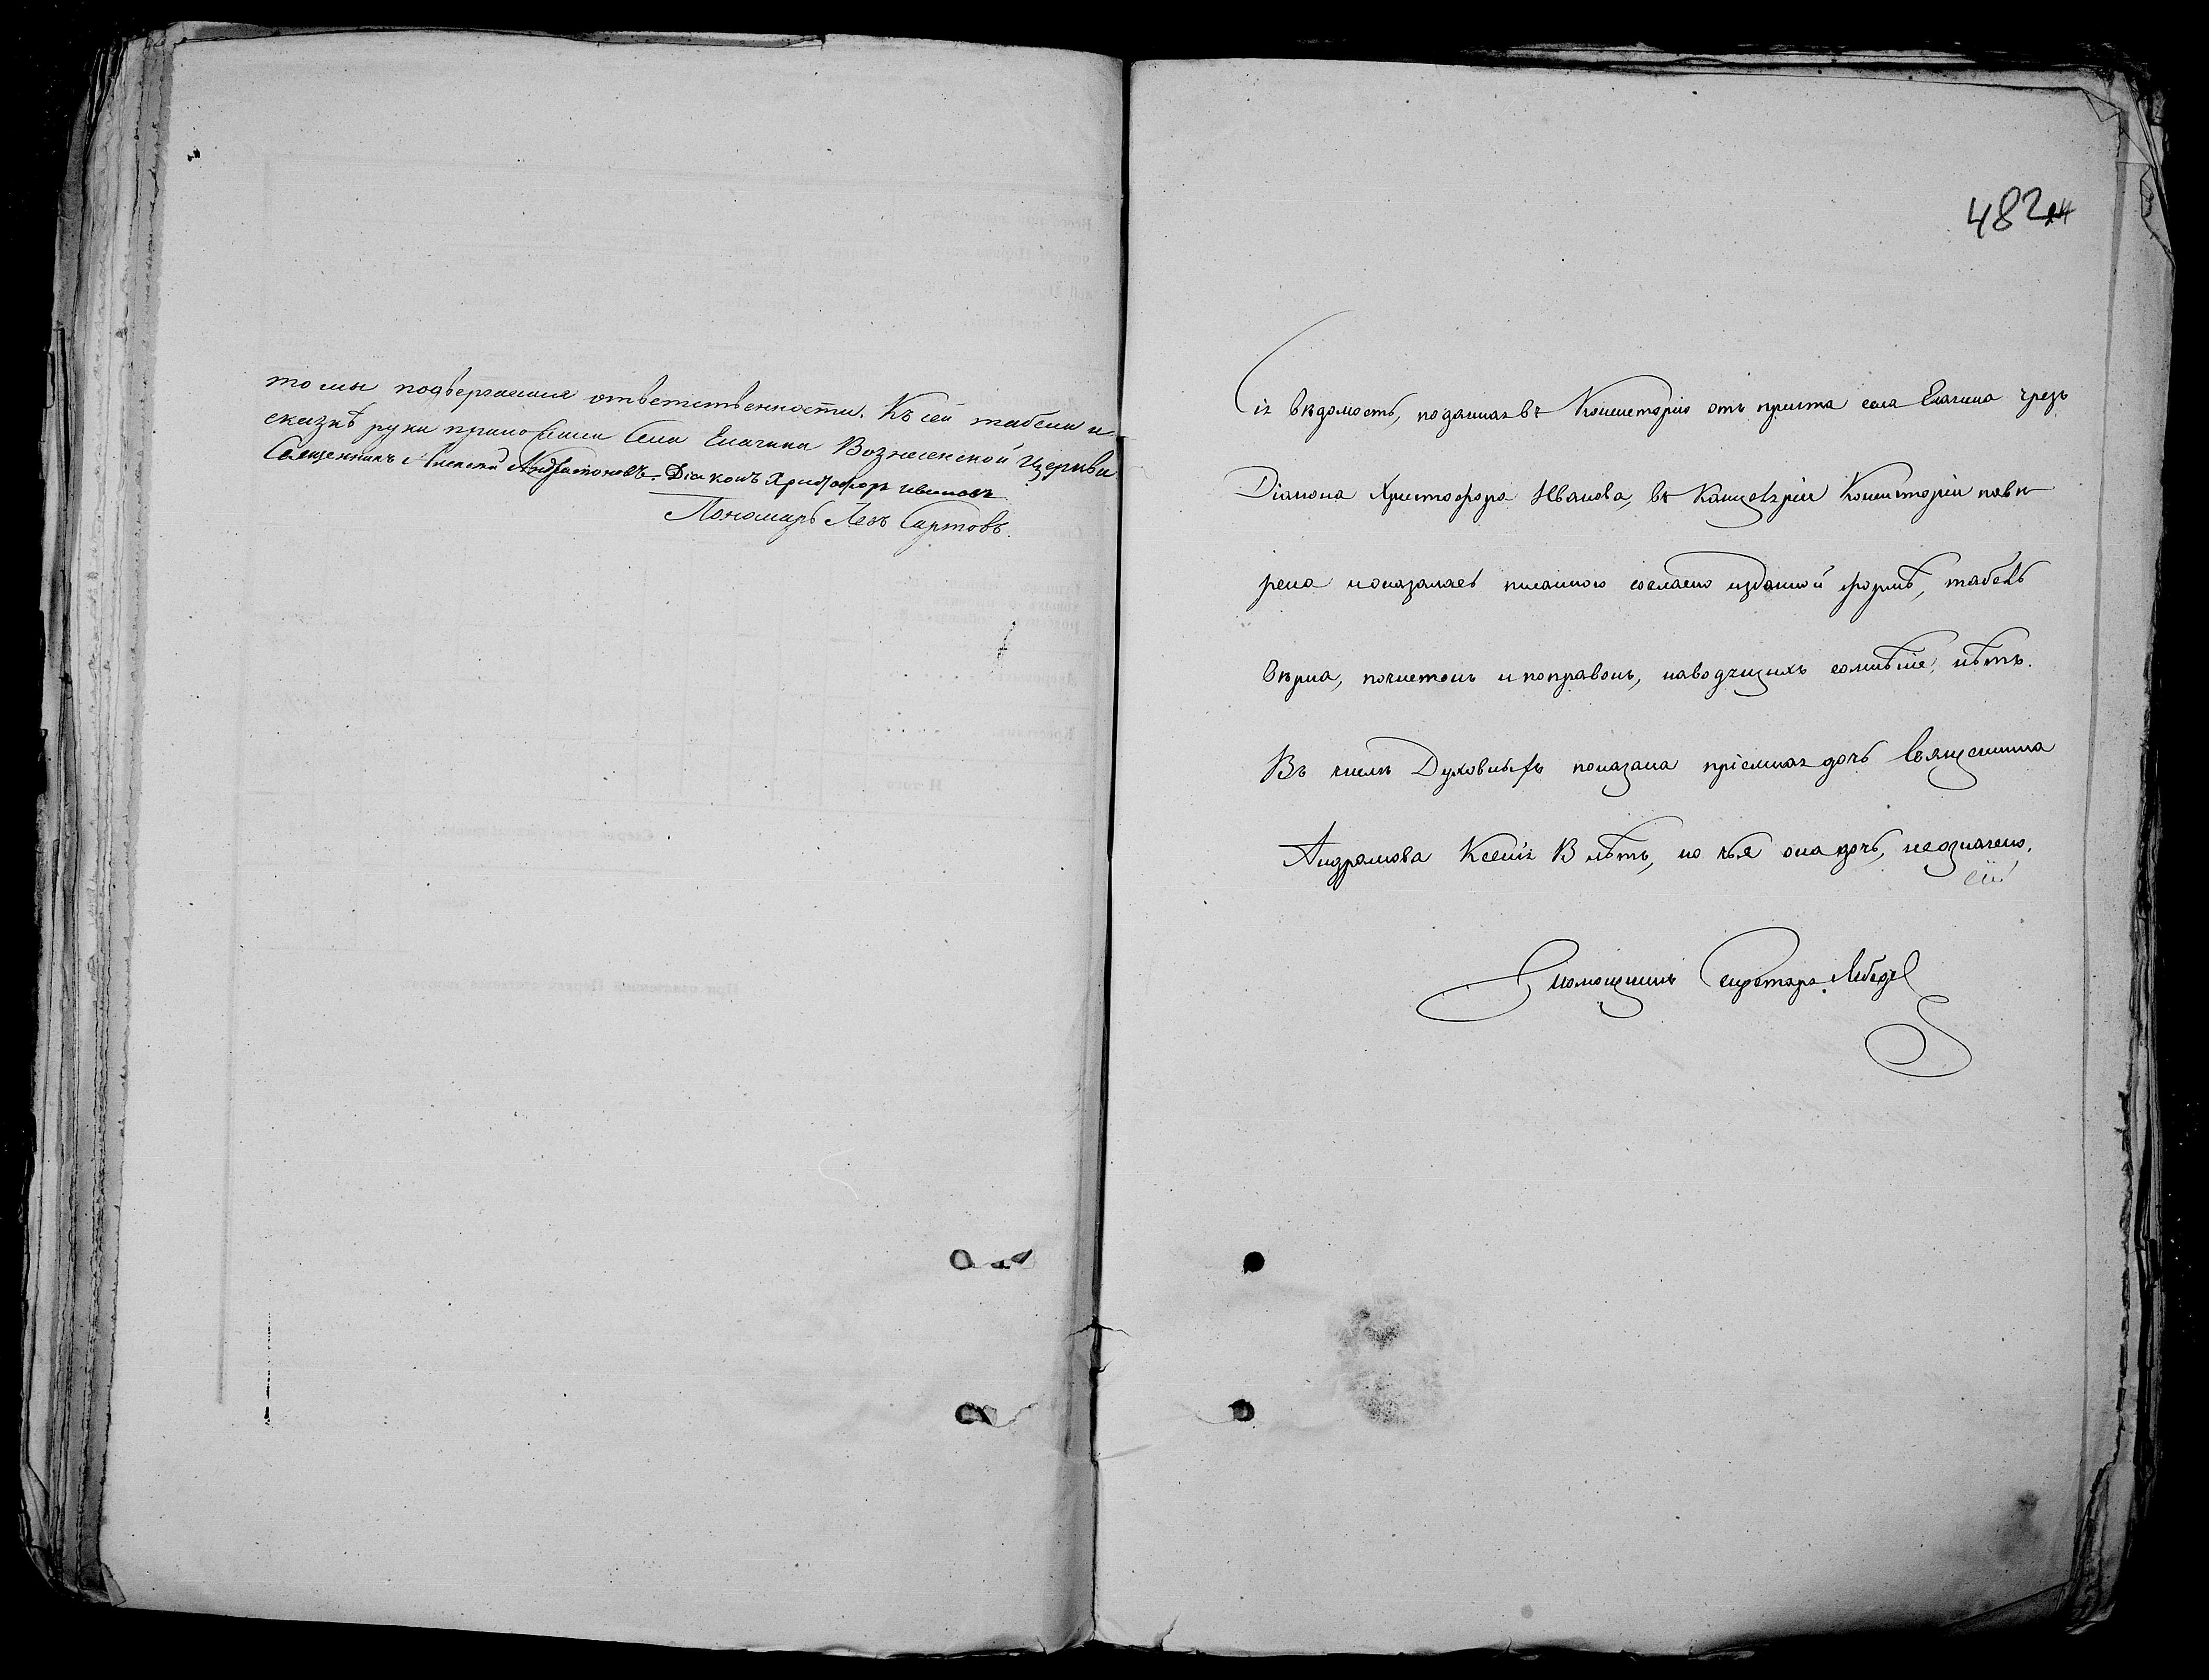 то мы подвергаемся отвѣтственности. Къ сей табели и
сказкѣ руки приложили Села Елагина Вознесенской Церкви
Священникъ Алексѣй Діаконъ Христофоръ Ивановъ
Пономарь Левъ Сартовъ.
482
Сія вѣдомость, поданная въ Консисторію отъ причта села Елагина чрезъ
Діакона Христофора Иванова, въ Канцеляріи Консисторіи повѣ
рена и оказалась писанною согласно изданной формѣ, табель
вѣрна, почистокъ и поправокъ, наводящихъ сомнѣніе, нѣтъ.
Въ числѣ Духовныхъ показана пріемная дочь Священника
Ксенія 13 лѣтъ, но чья она дочь, неозначено.
Помощникъ Секретаря Лебедев